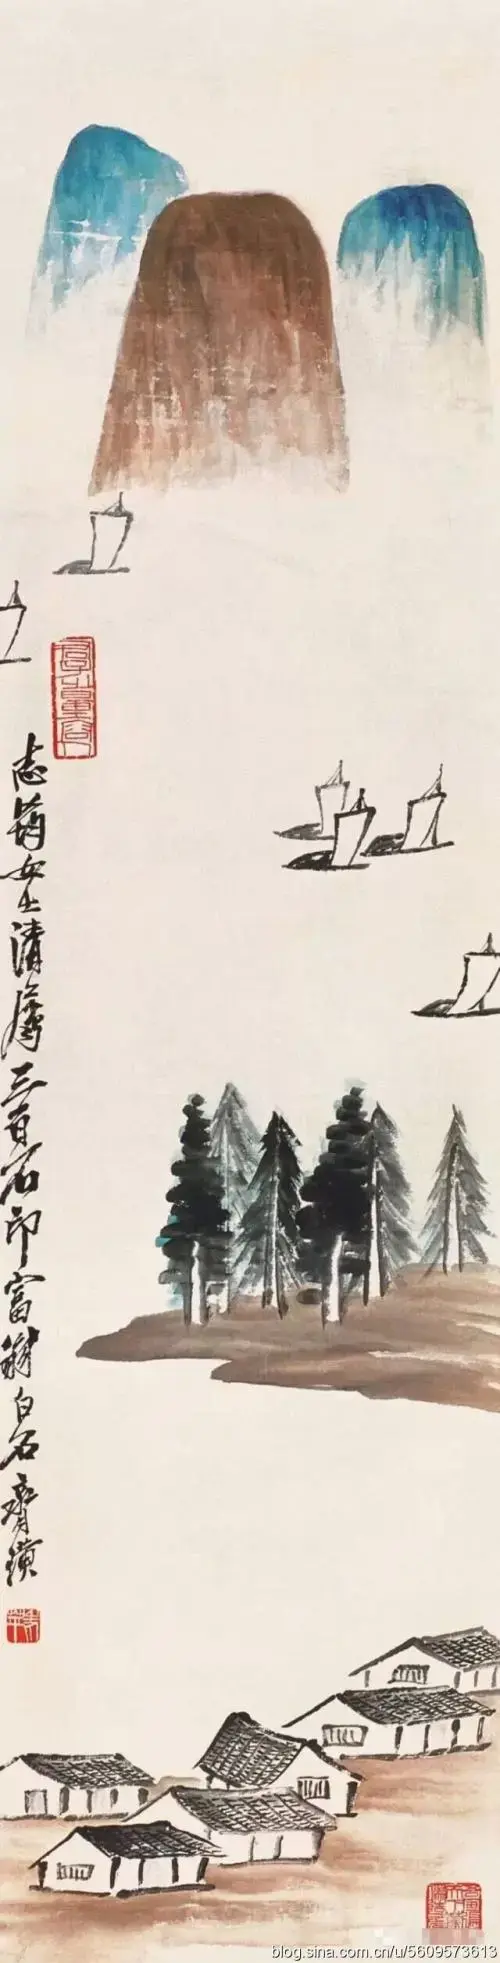 志筠女士清屬三百石印富翁白石齊璜
blog.sina.com.cn/u/5609573613